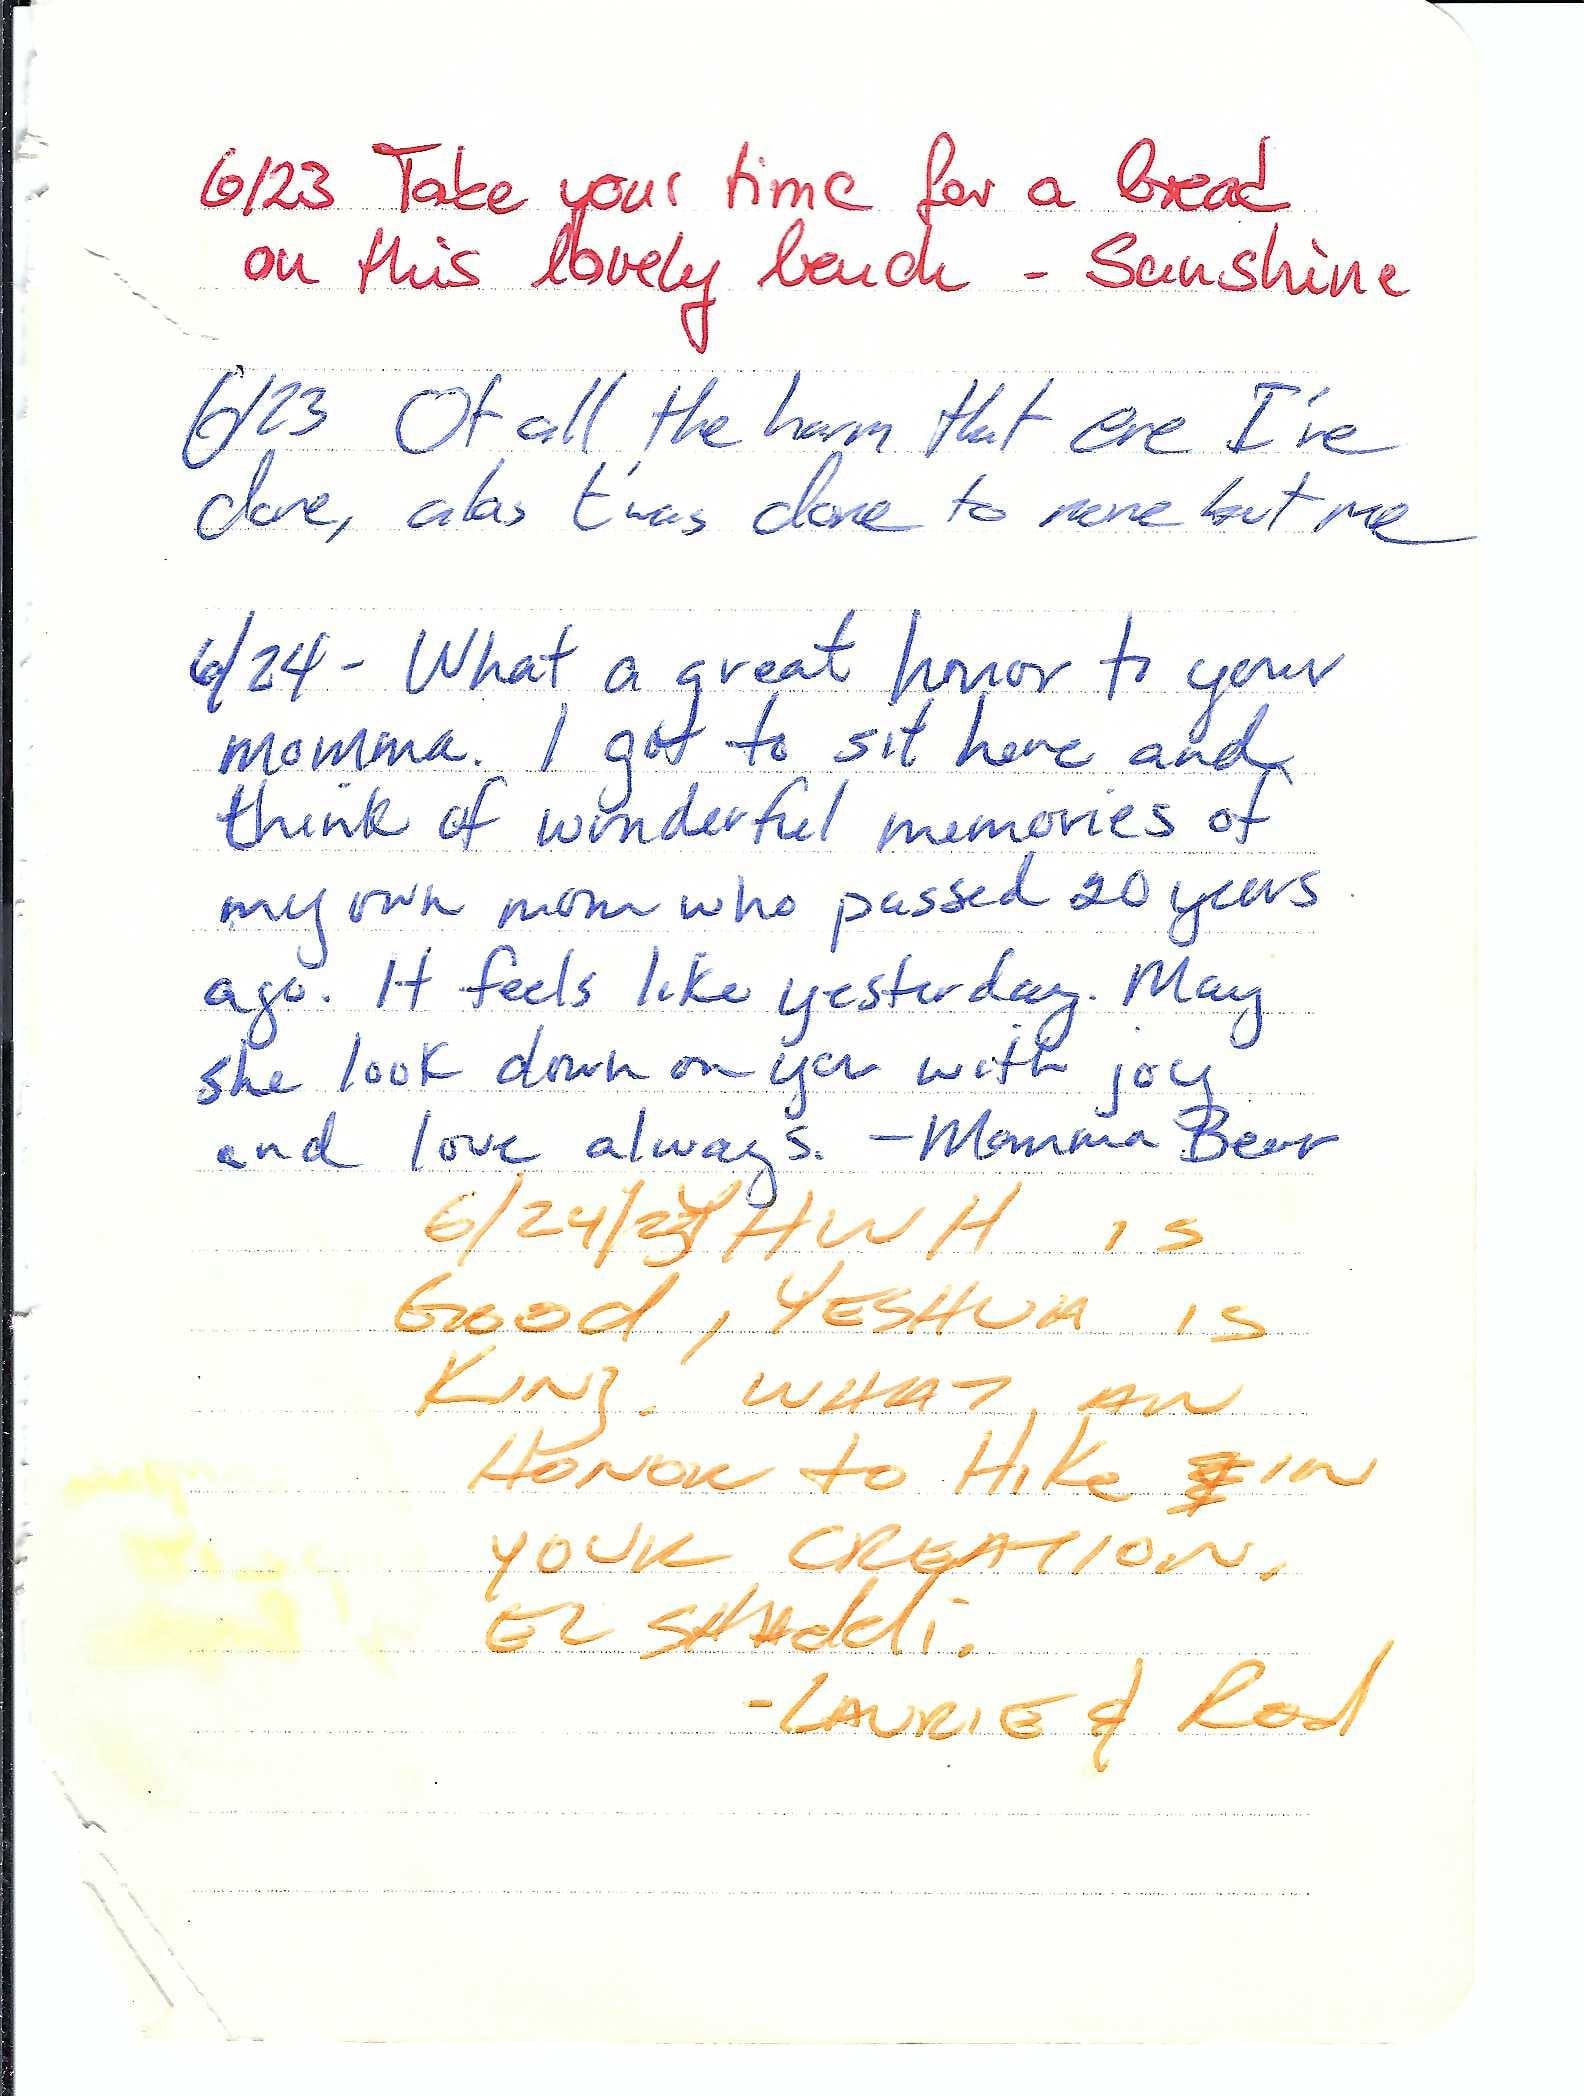 6/23 Take your time for a bread
on this lovely bench - Sunshine
6/23 Of all the harm that ere I've
done, alas t'was done to none but me
6/24 - What a great honor to your
momma. I got to sit here and
think of wonderful memories of
my own mom who passed 20 years
ago. It feels like yesterday. May
she look down on you with joy
and love always. - Momma Bear
6/24/23 YHWH is
Good, YESHUA is
King. WHAT AN
HONOR to Hike in
YOUR CREATION,
EL SHAddi.
- LAURIE & Rod